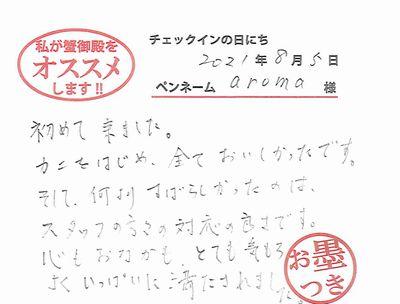 私が蟹御殿を
オススメ
します!!
チェックインの日にち
2021年8月5日
ペンネーム aroma 様
初めて来ました。
カニをはじめ、全ておいしかったです。
そして、何よりすばらしかったのは、
スタッフの方々の対応の良さです。
心もおなかも、とても気もち
よくいっぱいに満たされました。
お墨
つき